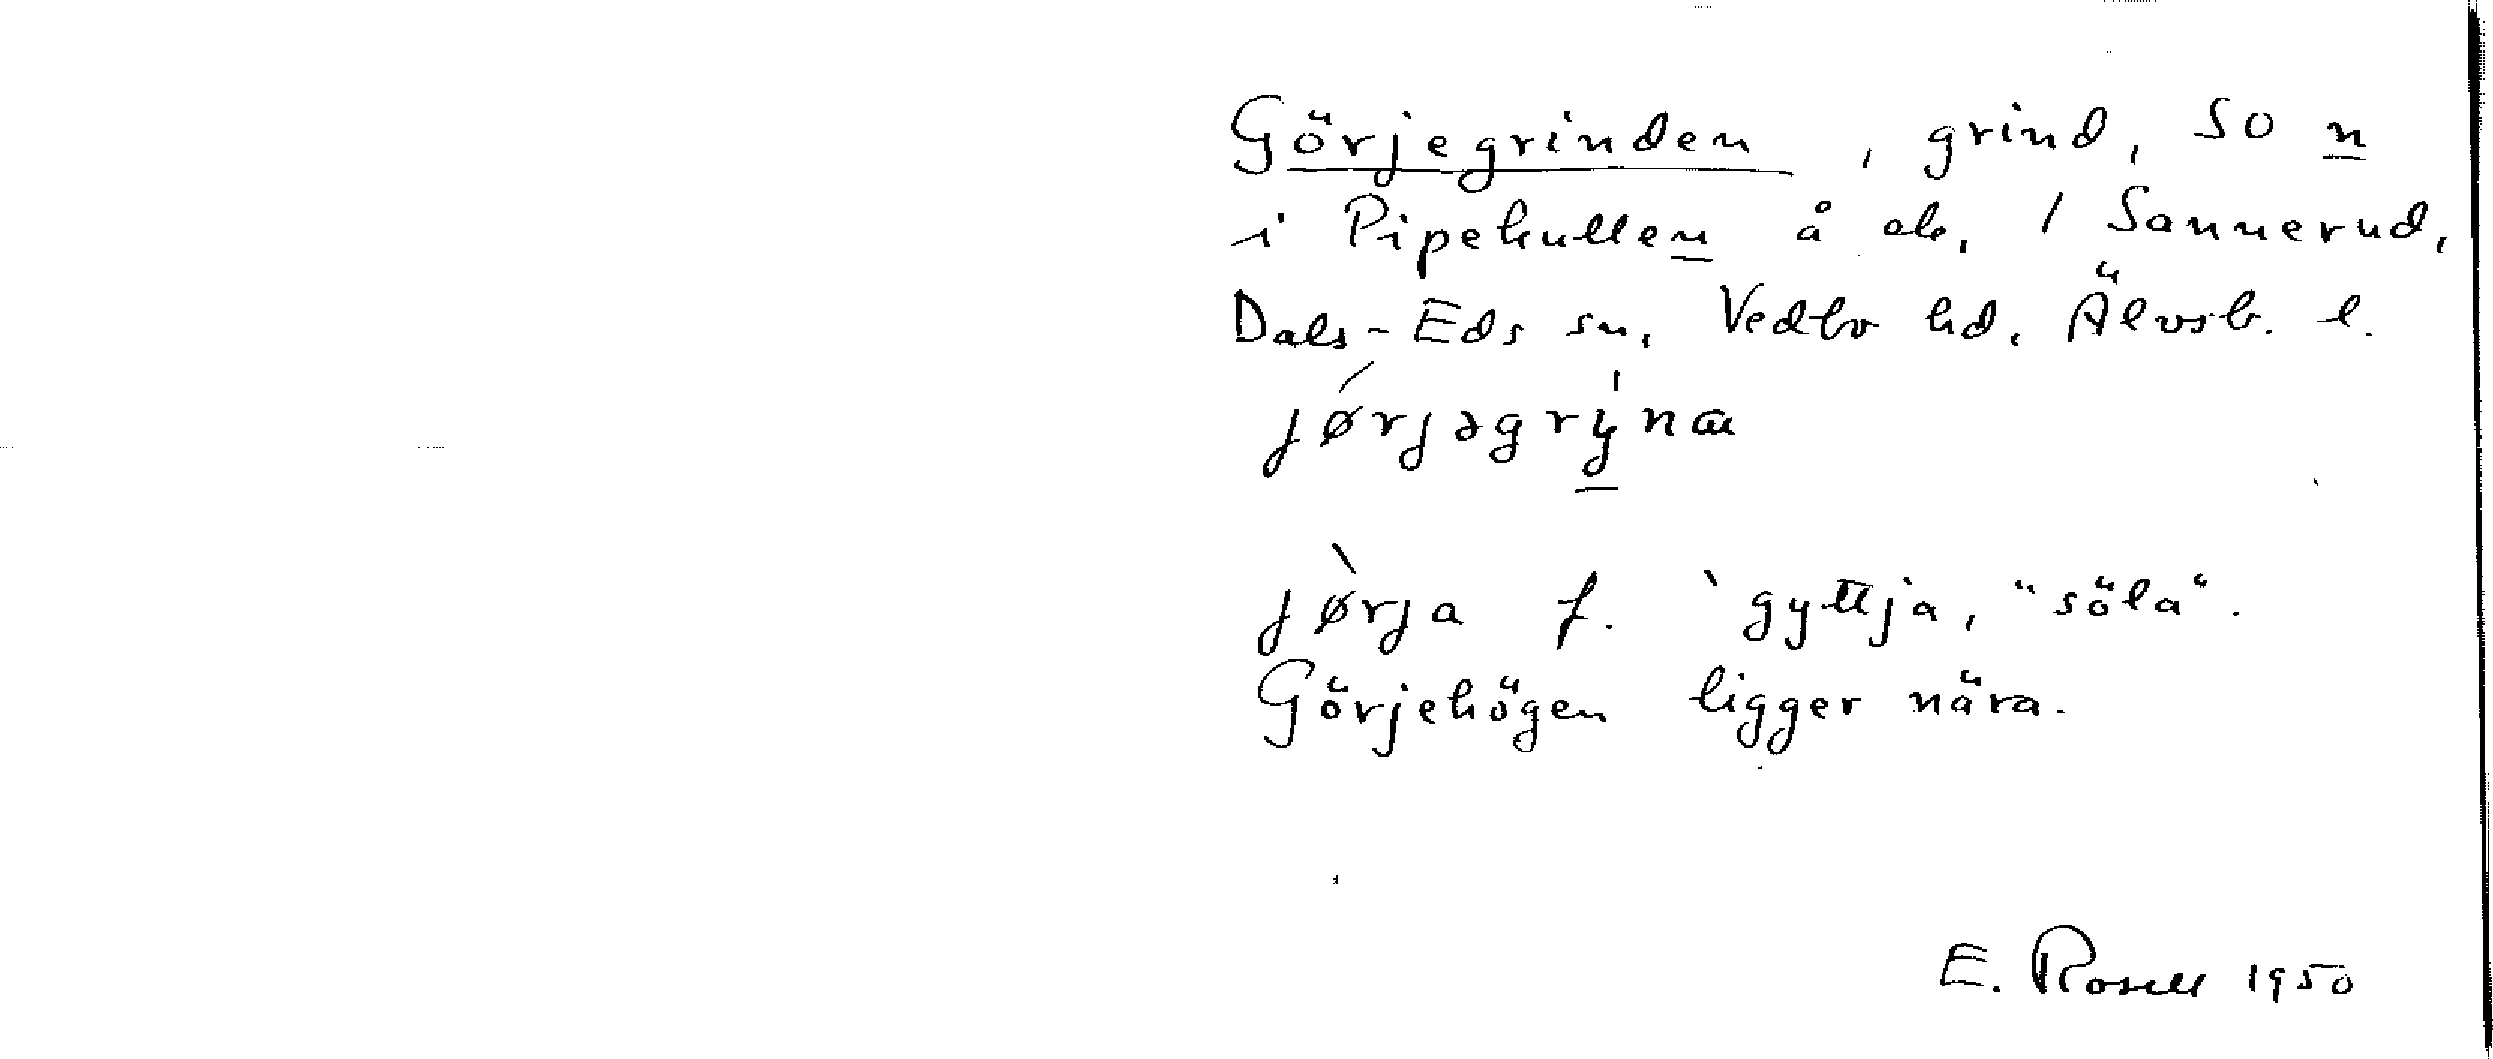 Görjegrinden, grind, SO n
i Pipekullen å ek. 1 Sannerud,
Dals-Eds sn, Vedbo hd, Älvsb. l.
jǿrjəgrýna
jø̀rja f. `gyttja, "söla".
Görjehögen ligger nära.
E. Rosell 1950